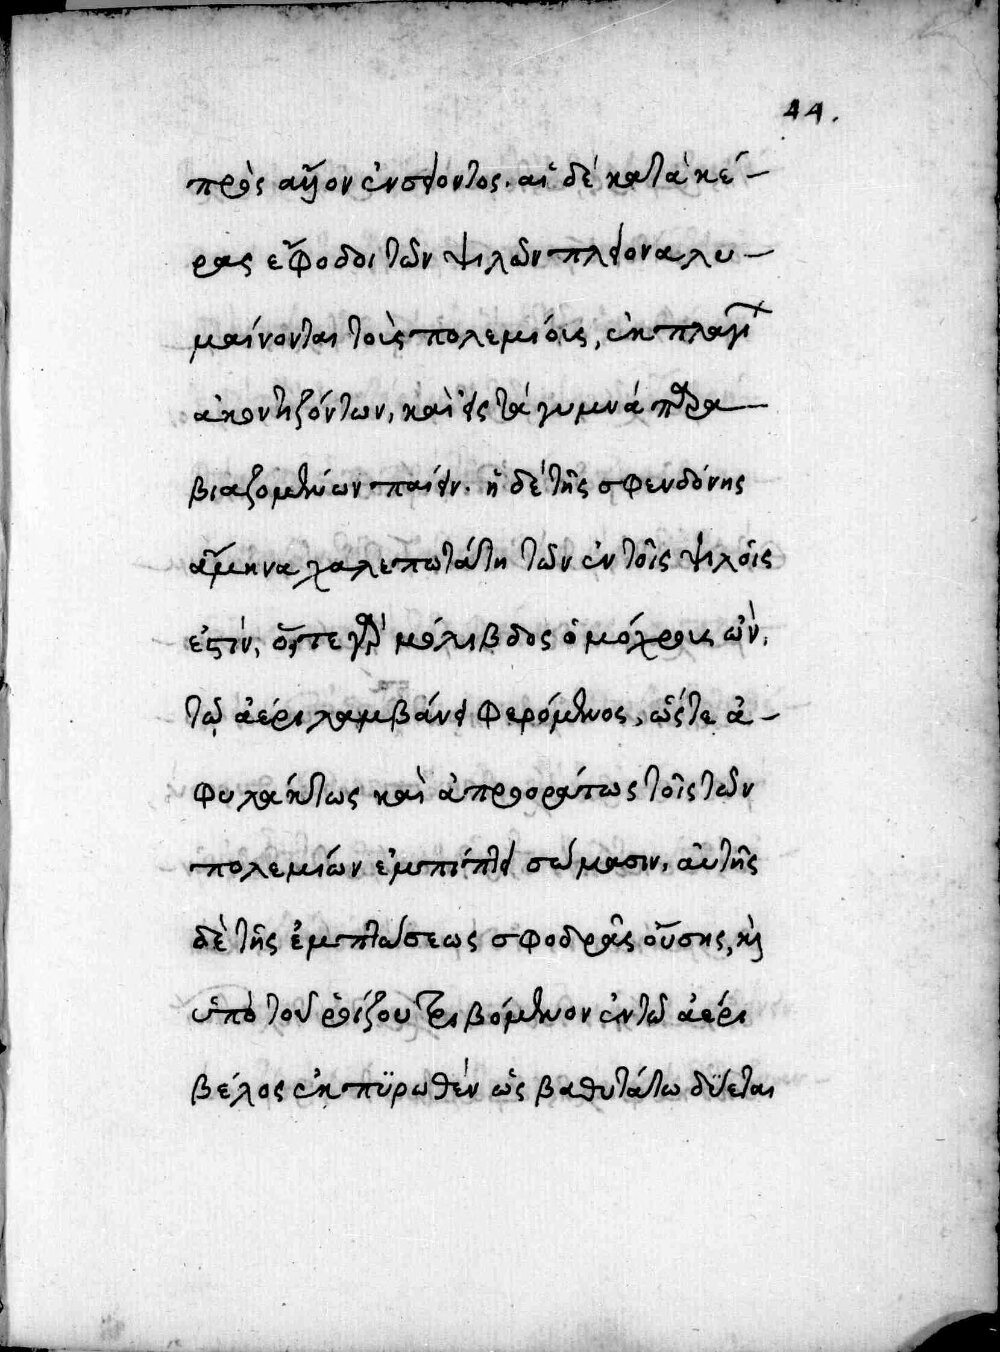 44.
πρὸς αὐτὸν ἐνσείοντος. αἱ δὲ κατὰ κέ-
ρας ἔφοδοι τῶν ψιλῶν πλείονα λυ-
μαίνονται τοὺς πολεμίοις, ἐκ πλαγίων
ἀκοντιζόντων, καὶ εἰς τὰ γυμνὰ παρα-
βιαζομένων παίειν. ἡ δὲ τῆς σφενδόνης
ἄμυνα χαλεπωτάτη τῶν ἐν τοῖς ψιλοῖς
ἐστίν, ὅτε γὰρ μόλιβδος ὁμόχρους ὢν,
τῷ ἀέρι λαμβάνει φερόμενος, ὥστε ἀ-
φυλάκτως καὶ ἀπροοράτως τοῖς τῶν
πολεμίων ἐμπίπτει σώμασιν, αὐτῆς
δὲ τῆς ἐμπτώσεως σφοδρᾶς οὔσης, καὶ
ὑπὸ τοῦ ῥοίζου τριβόμενον ἐν τῷ ἀέρι
βέλος ἐκπϋρωθὲν ὡς βαθυτάτω δύεται